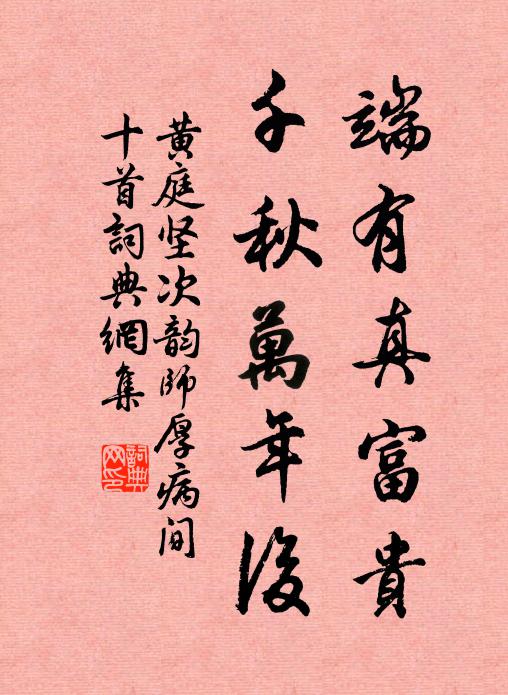 端有真富貴
千秋萬年後
黄庭坚次韵師厚病间
十首詞典網集
詞典网印